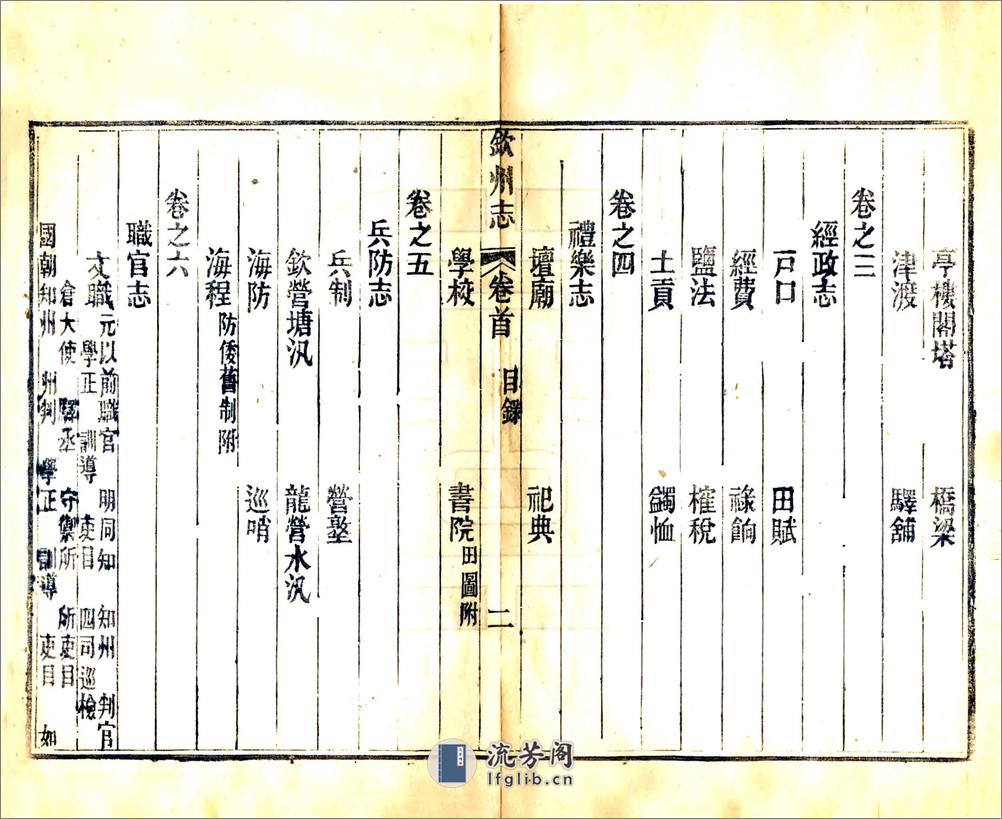 亭樓閣塔 橋梁
津渡 驛舖
卷之三
經政志
戸口 田賦
經費 祿餉
鹽法 榷稅
土貢 蠲恤
卷之四
禮樂志
壇廟 祀典
欽州志 卷首 目錄 二
學校 書院田圖附
卷之五
兵防志
兵制 營壘
欽營塘汛 龍營水汛
海防 巡哨
海程防倭舊制附
卷之六
職官志
文職元以前職官 明同知 知州 判官
學正 訓導 吏目 四司巡檢
倉大使 驛丞 守禦所 所吏目
國朝知州 州判 學正 訓導 吏目 如
流芳阁
lfglib.cn